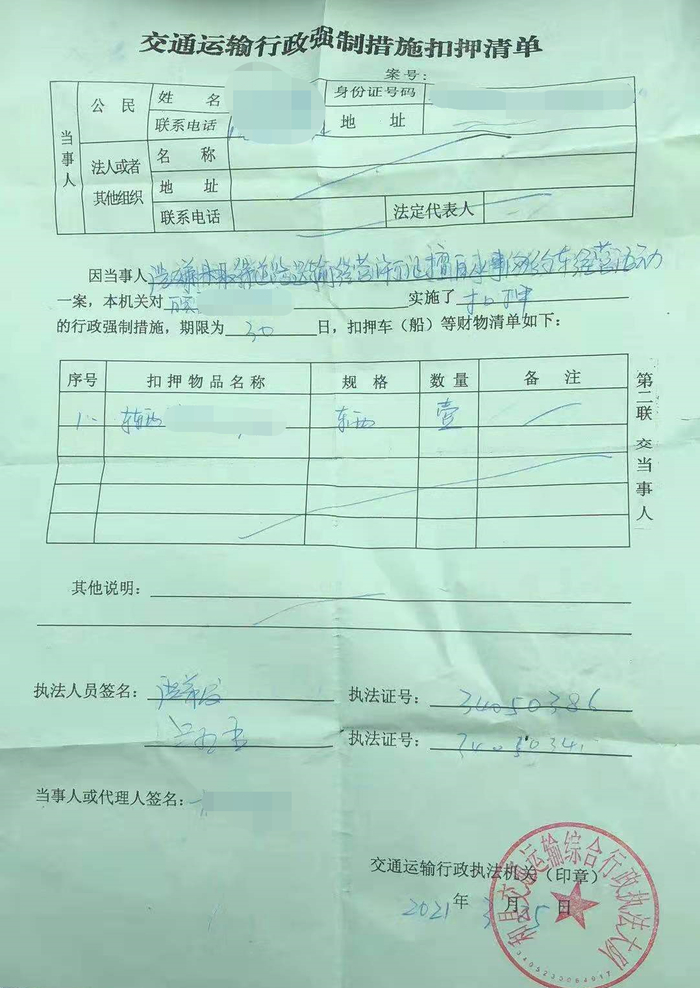 交通运输行政强制措施扣押清单
案号：
当事人
公民
姓名
身份证号码
联系电话
地址
法人或者其他组织
名称
地址
联系电话
法定代表人
因当事人 未取得道路运输经营许可证擅自从事网约车经营活动
一案，本机关对 实施了 扣押
的行政强制措施，期限为 30 日，扣押车（船）等财物清单如下：
序号 扣押物品名称 规格 数量 备注
1 车辆 车辆 壹
第二联 交当事人
其他说明：
执法人员签名： 执法证号： 34050386
执法证号：
当事人或代理人签名：
交通运输行政执法机关（印章）
2021年 3月 25日
和县交通运输综合行政执法大队